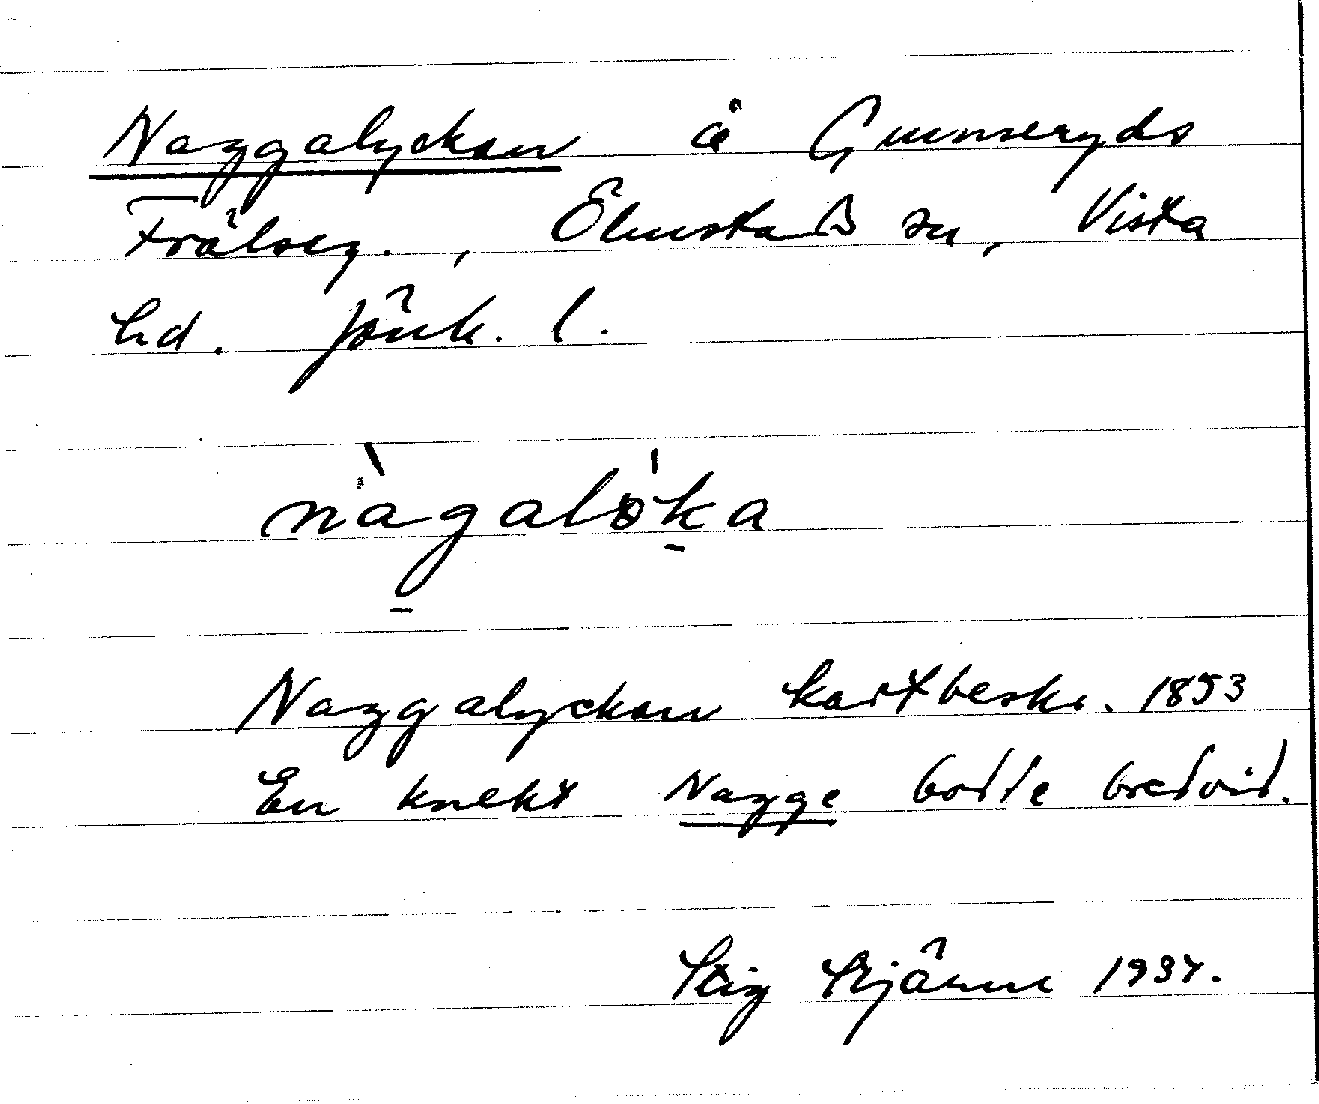 Naggalyckan å Gunneryds
Frälseg., Ölmstads sn, Vista
hd. Jönk. l.
nàgalöka
Naggalyckan kartbeskr. 1853
En knekt Nagge bodde bredvid.
Stig 1937.